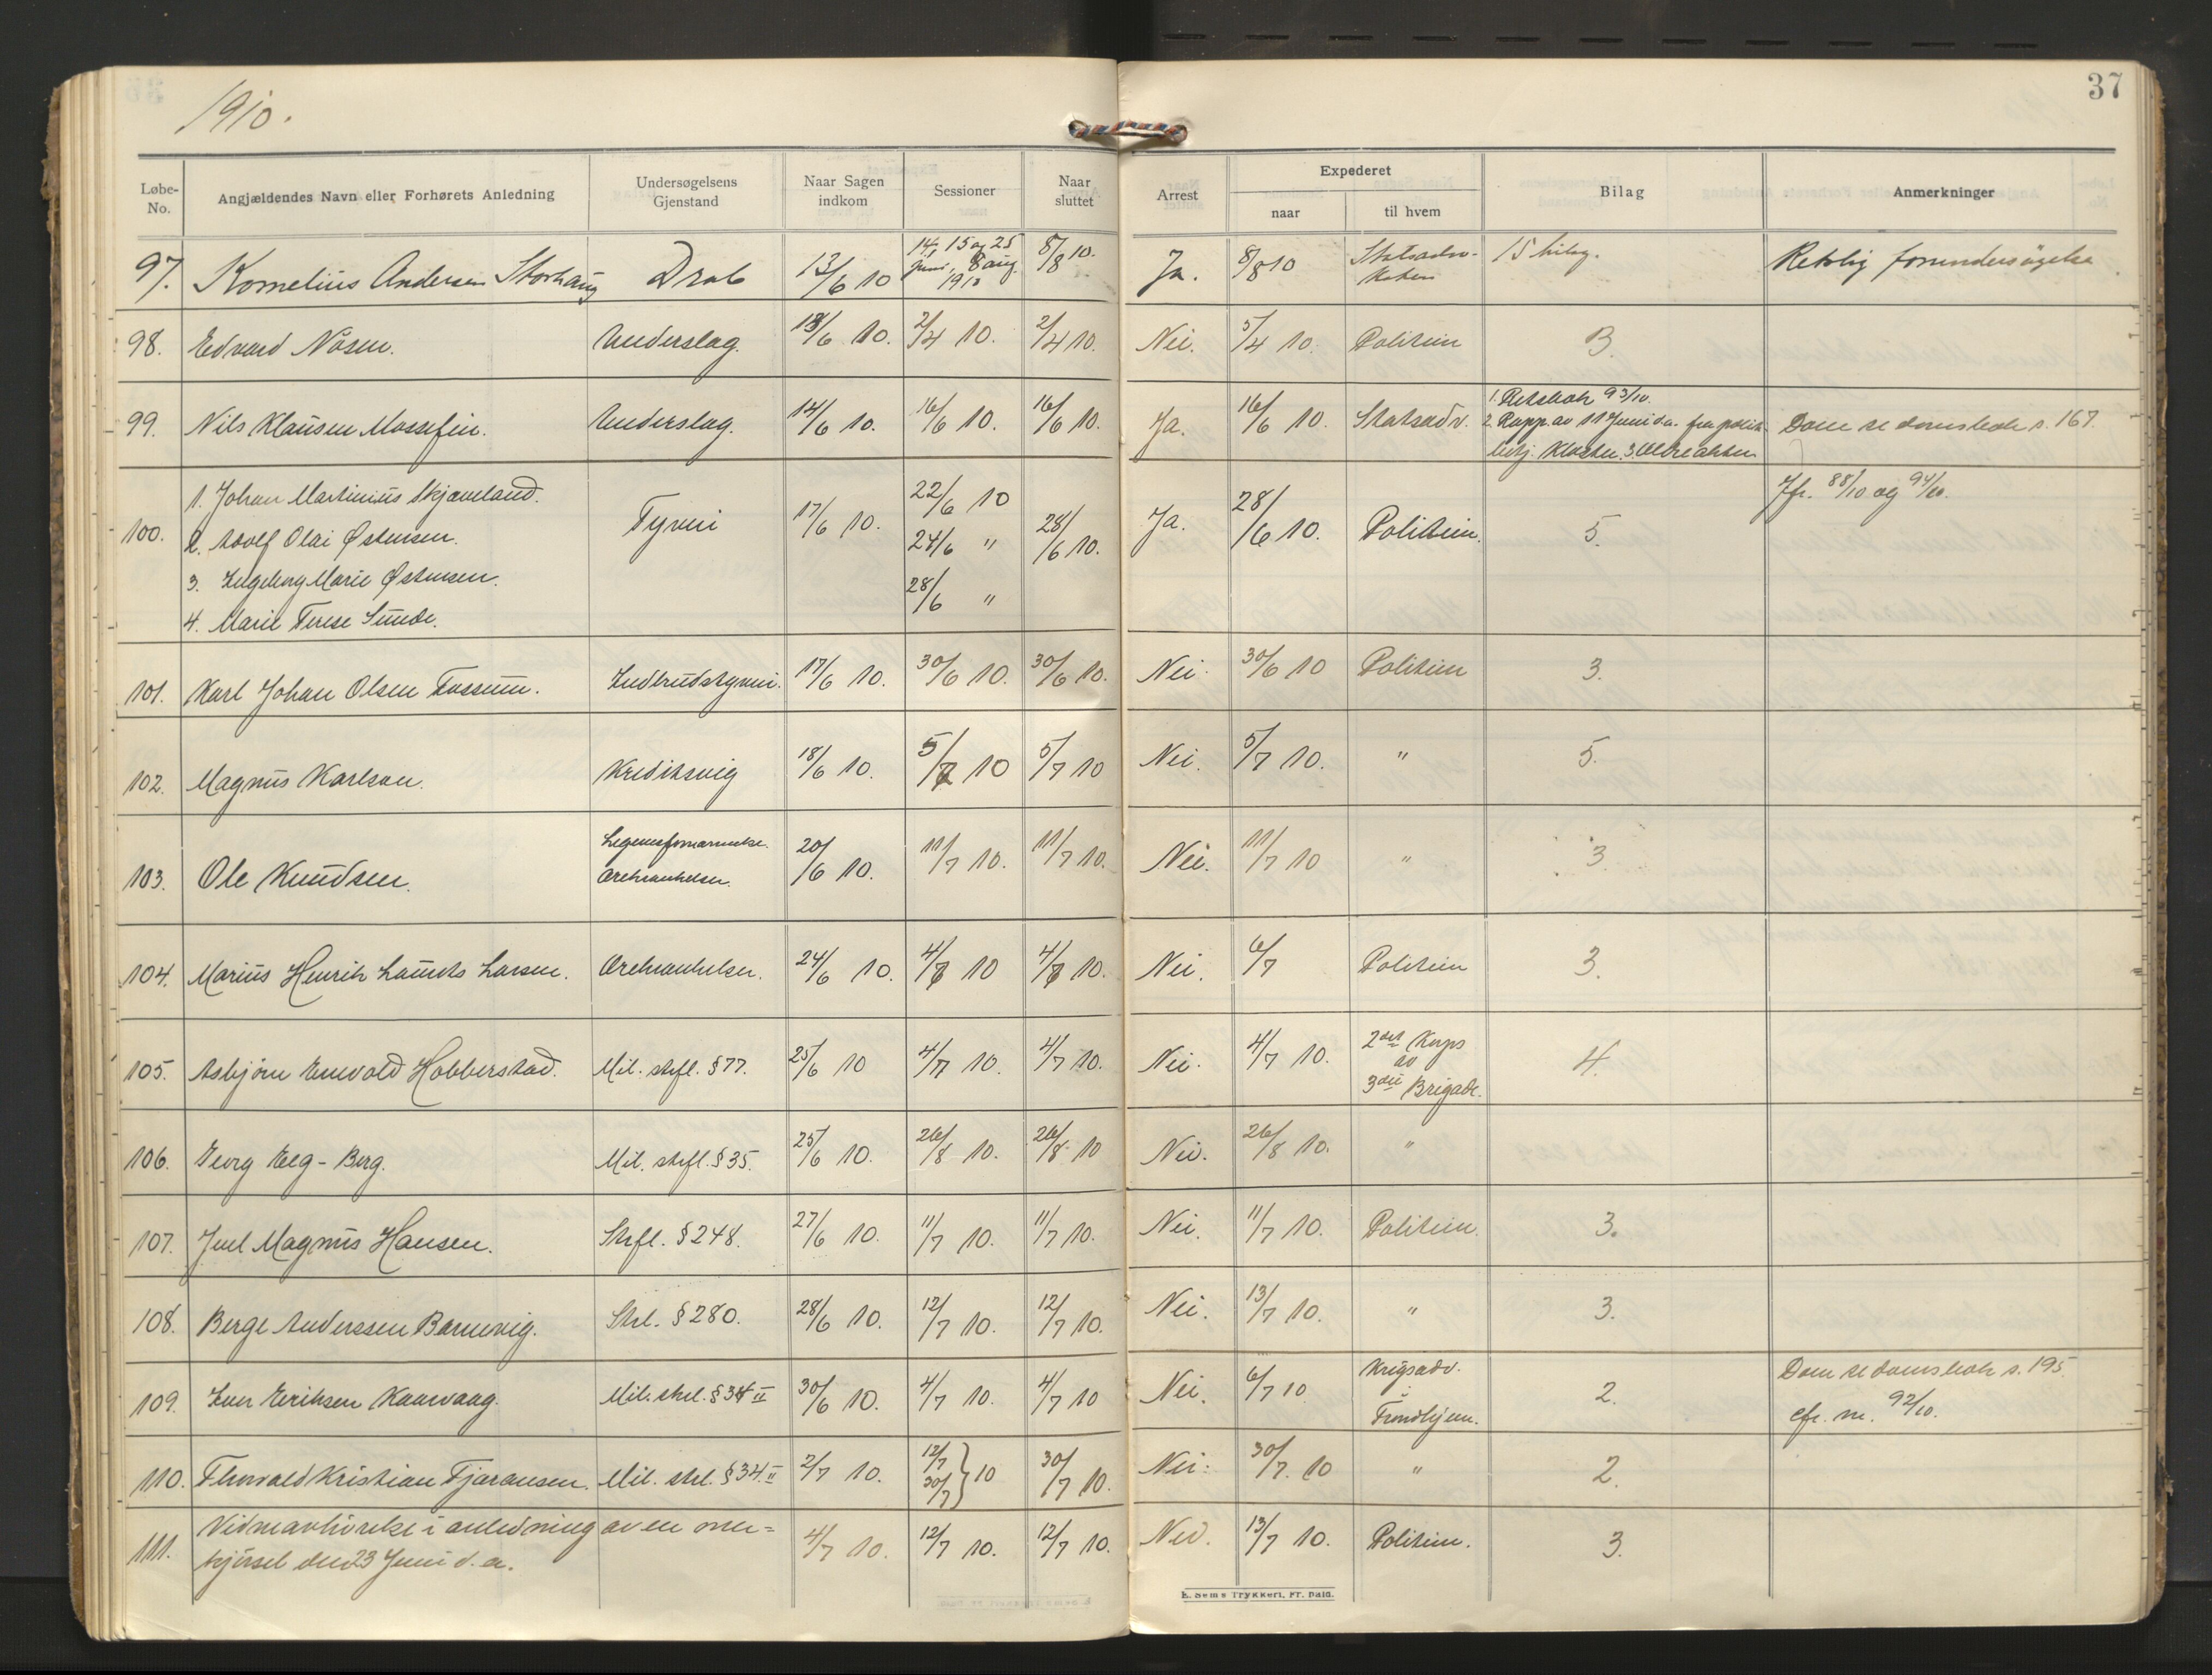 1910.
37
Løbe-No. Angjældendes Navn eller Forhørets Anledning Undersøgelsens Gjenstand Naar Sagen indkom Sessioner Naar sluttet Arrest Expederet naar til hvem Bilag Anmerkninger
97. Kornelius Andersen Storhaug Drab 13/6 10 14, 15 og 25 juni, 8 aug. 1910 8/8 10. Ja. 8/8 10 Statsadvokaten 15 bilag. Retslig forundersøgelse
98. Edvard Nåsen. Underslag. 13/6 10. 2/4 10. 2/4 10. Nei. 5/4 10. Politiein B.
99. Nils Klausen Mossefin. Underslag. 14/6 10. 16/6 10. 16/6 10. Ja. 16/6 10. Statsadv. 1. Retsbok 93/10.
2. Rapp. av 11 Juni d.a. fra politi-
betj. Kloster. 3. Dom se domsbok s. 167.
100. 1. Johan Martinius Skjæveland. Tyveri 17/6 10. 22/6 10 28/6 10. Ja. 28/6 10. Politiein. 5. Jfr. 88/10 og 94/10.
2. Adolf Olai Østensen. 24/6 "
3. Ingeborg Marie Østensen. 28/6 "
4. Marie Terese Sunde.
101. Karl Johan Olsen Fossum. Indbrudstyveri. 17/6 10. 30/6 10. 30/6 10. Nei. 30/6 10 Politiein 3.
102. Magnus Karlson. Kreditsvig 18/6 10. 5/7 10 5/7 10 Nei. 5/7 10. " 5.
103. Ole Knudsen. Legemsfornærmelse. Ærekrænkelser. 20/6 10. 11/7 10. 11/7 10. Nei. 11/7 10 " 3
104. Marius Henrik Laurits Larsen. Ærekrænkelser. 24/6 10. 4/7 10 4/7 10. Nei. 6/7 Politiein 3.
105. Asbjørn Enevold Hobberstad. Mil. strfl. § 77. 25/6 10 4/7 10. 4/7 10. Nei. 4/7 10. 2det Korps av 3die Brigade. 4.
106. Georg Eeg-Berg. Mil. strfl. § 35. 25/6 10. 26/8 10. 26/8 10 Nei. 26/8 10. "
107. Juel Magnus Hansen. Strfl. § 248. 27/6 10. 11/7 10. 11/7 10. Nei. 11/7 10. Politiein. 3.
108. Berge Anderssen Barnevig. Strl. § 280. 28/6 10. 12/7 10. 12/7 10. Nei. 13/7 10. " 3.
109. Iver Eriksen Kaarvaag. Mil. strl. § 34 II 30/6 10. 4/7 10. 4/7 10 Nei. 6/7 10 Krigsadv. i Trondhjem. 2. Dom se domsbok s. 195.
cfr. nr. 92/10.
110. Thorvald Kristian Tjøransen. Mil. strl. § 34. II 2/7 10. 12/7 30/7 } 10 30/7 10. Nei. 30/7. 10 " 2.
111. Vidneavhørelse i anledning av en over=
kjørsel den 23 Juni d.a. 4/7 10. 12/7 10. 12/7 10. Nei. 13/7 10. Politiein. 3.
E. Sems Trykkeri, Fr. hald.